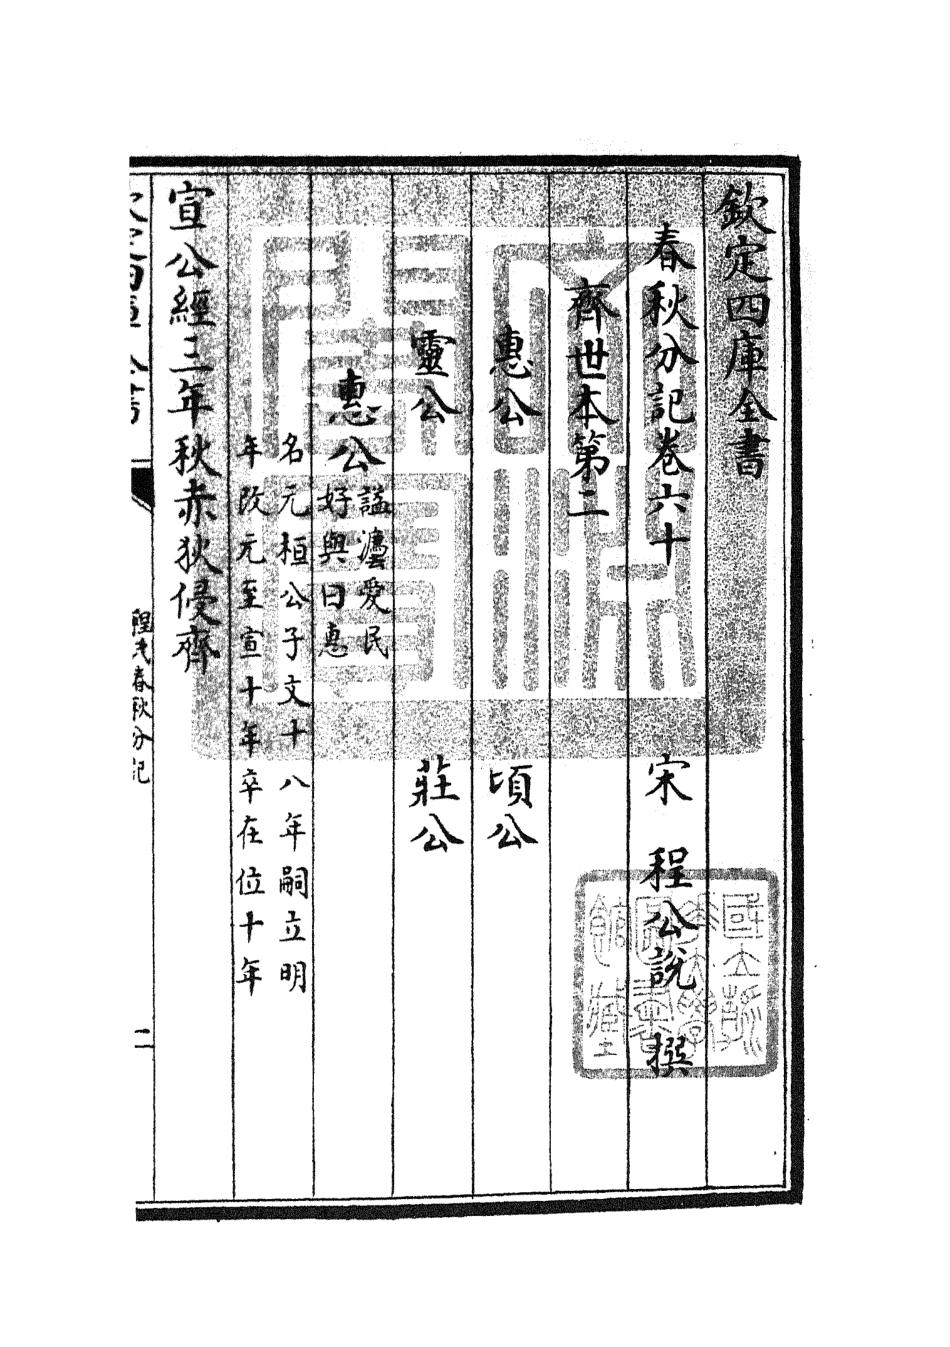 欽定四庫全書
春秋分記卷六十
宋 程公說 撰
齊世本第二
惠公 頃公
靈公 莊公
惠公
謚灋愛民
好與曰惠
名元桓公子文十八年嗣立明
年改元至宣十年卒在位十年
宣公經三年秋赤狄侵齊
程氏春秋分記
文淵閣寶
國立浙
江大學
圖書
館藏